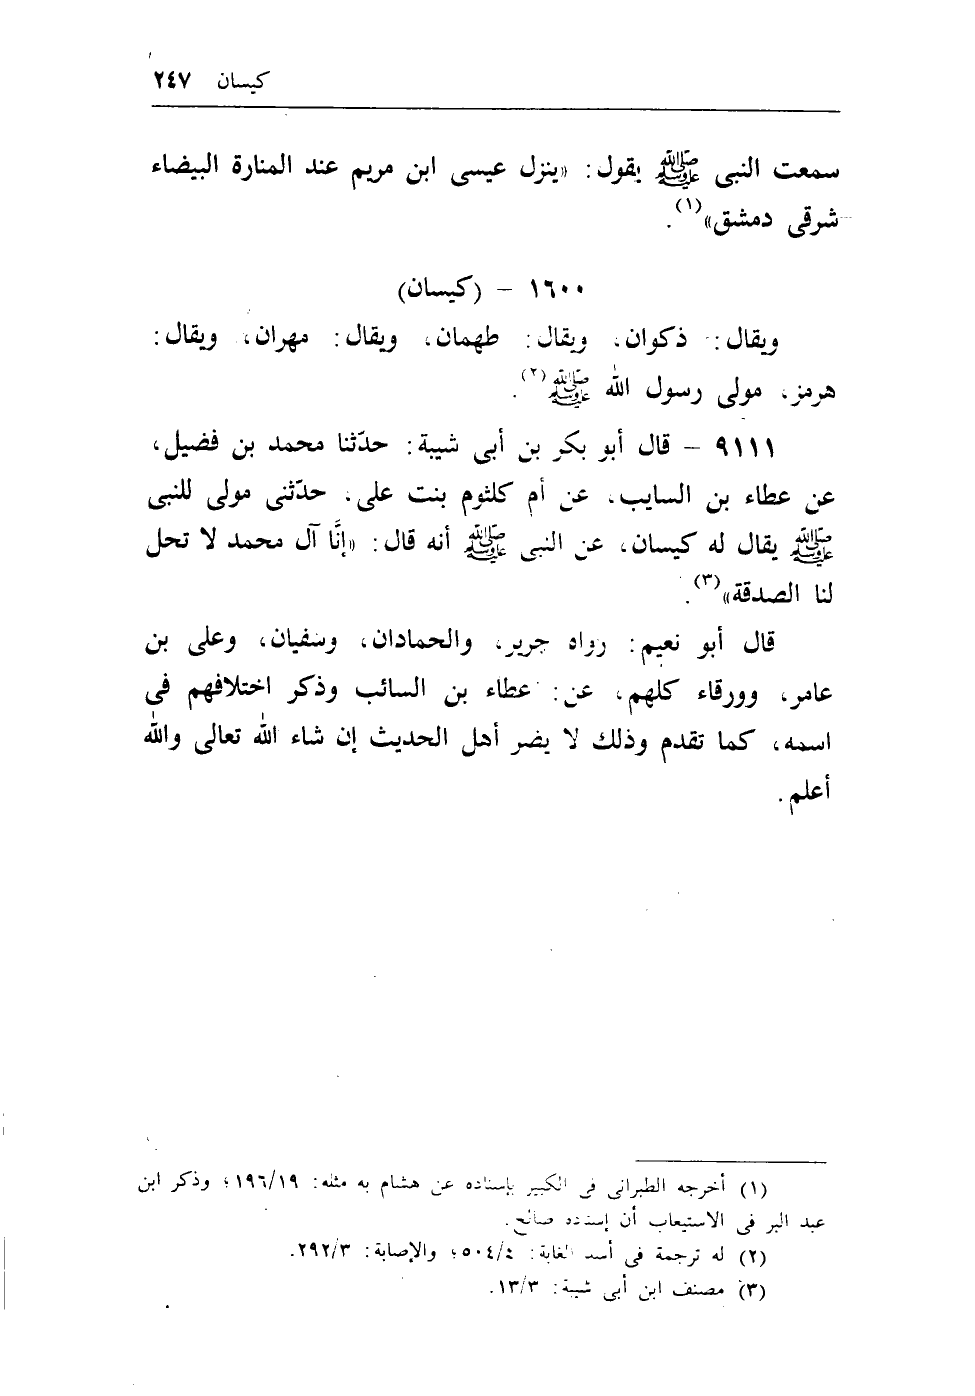 كيسان ٢٤٧
سمعت النبى ﷺ يقول: «ينزل عيسى ابن مريم عند المنارة البيضاء
شرقى دمشق»(١).
١٦٠٠ – (كيسان)
ويقال: ذكوان، ويقال: طهمان، ويقال: مهران، ويقال:
هرمز، مولى رسول الله ﷺ(٢).
٩١١١ – قال أبو بكر بن أبى شيبة: حدّثنا محمد بن فضيل،
عن عطاء بن السايب، عن أم كلثوم بنت على، حدّثنى مولى للنبى
ﷺ يقال له كيسان، عن النبى ﷺ أنه قال: «إنَّا آل محمد لا تحل
لنا الصدقة»(٣).
قال أبو نعيم: رواه جرير، والحمادان، وسفيان، وعلى بن
عامر، وورقاء كلهم، عن: عطاء بن السائب وذكر اختلافهم فى
اسمه، كما تقدم وذلك لا يضر أهل الحديث إن شاء الله تعالى والله
أعلم.
(١) أخرجه الطبرانى فى الكبير بإسناده عن هشام به مثله: ١٩٦/١٩؛ وذكر ابن
عبد البر فى الاستيعاب أن إسناده صالح.
(٢) له ترجمة فى أسد الغابة: ٥٠٤/٤؛ والإصابة: ٢٩٢/٣.
(٣) مصنف ابن أبى شيبة: ١٣/٣.